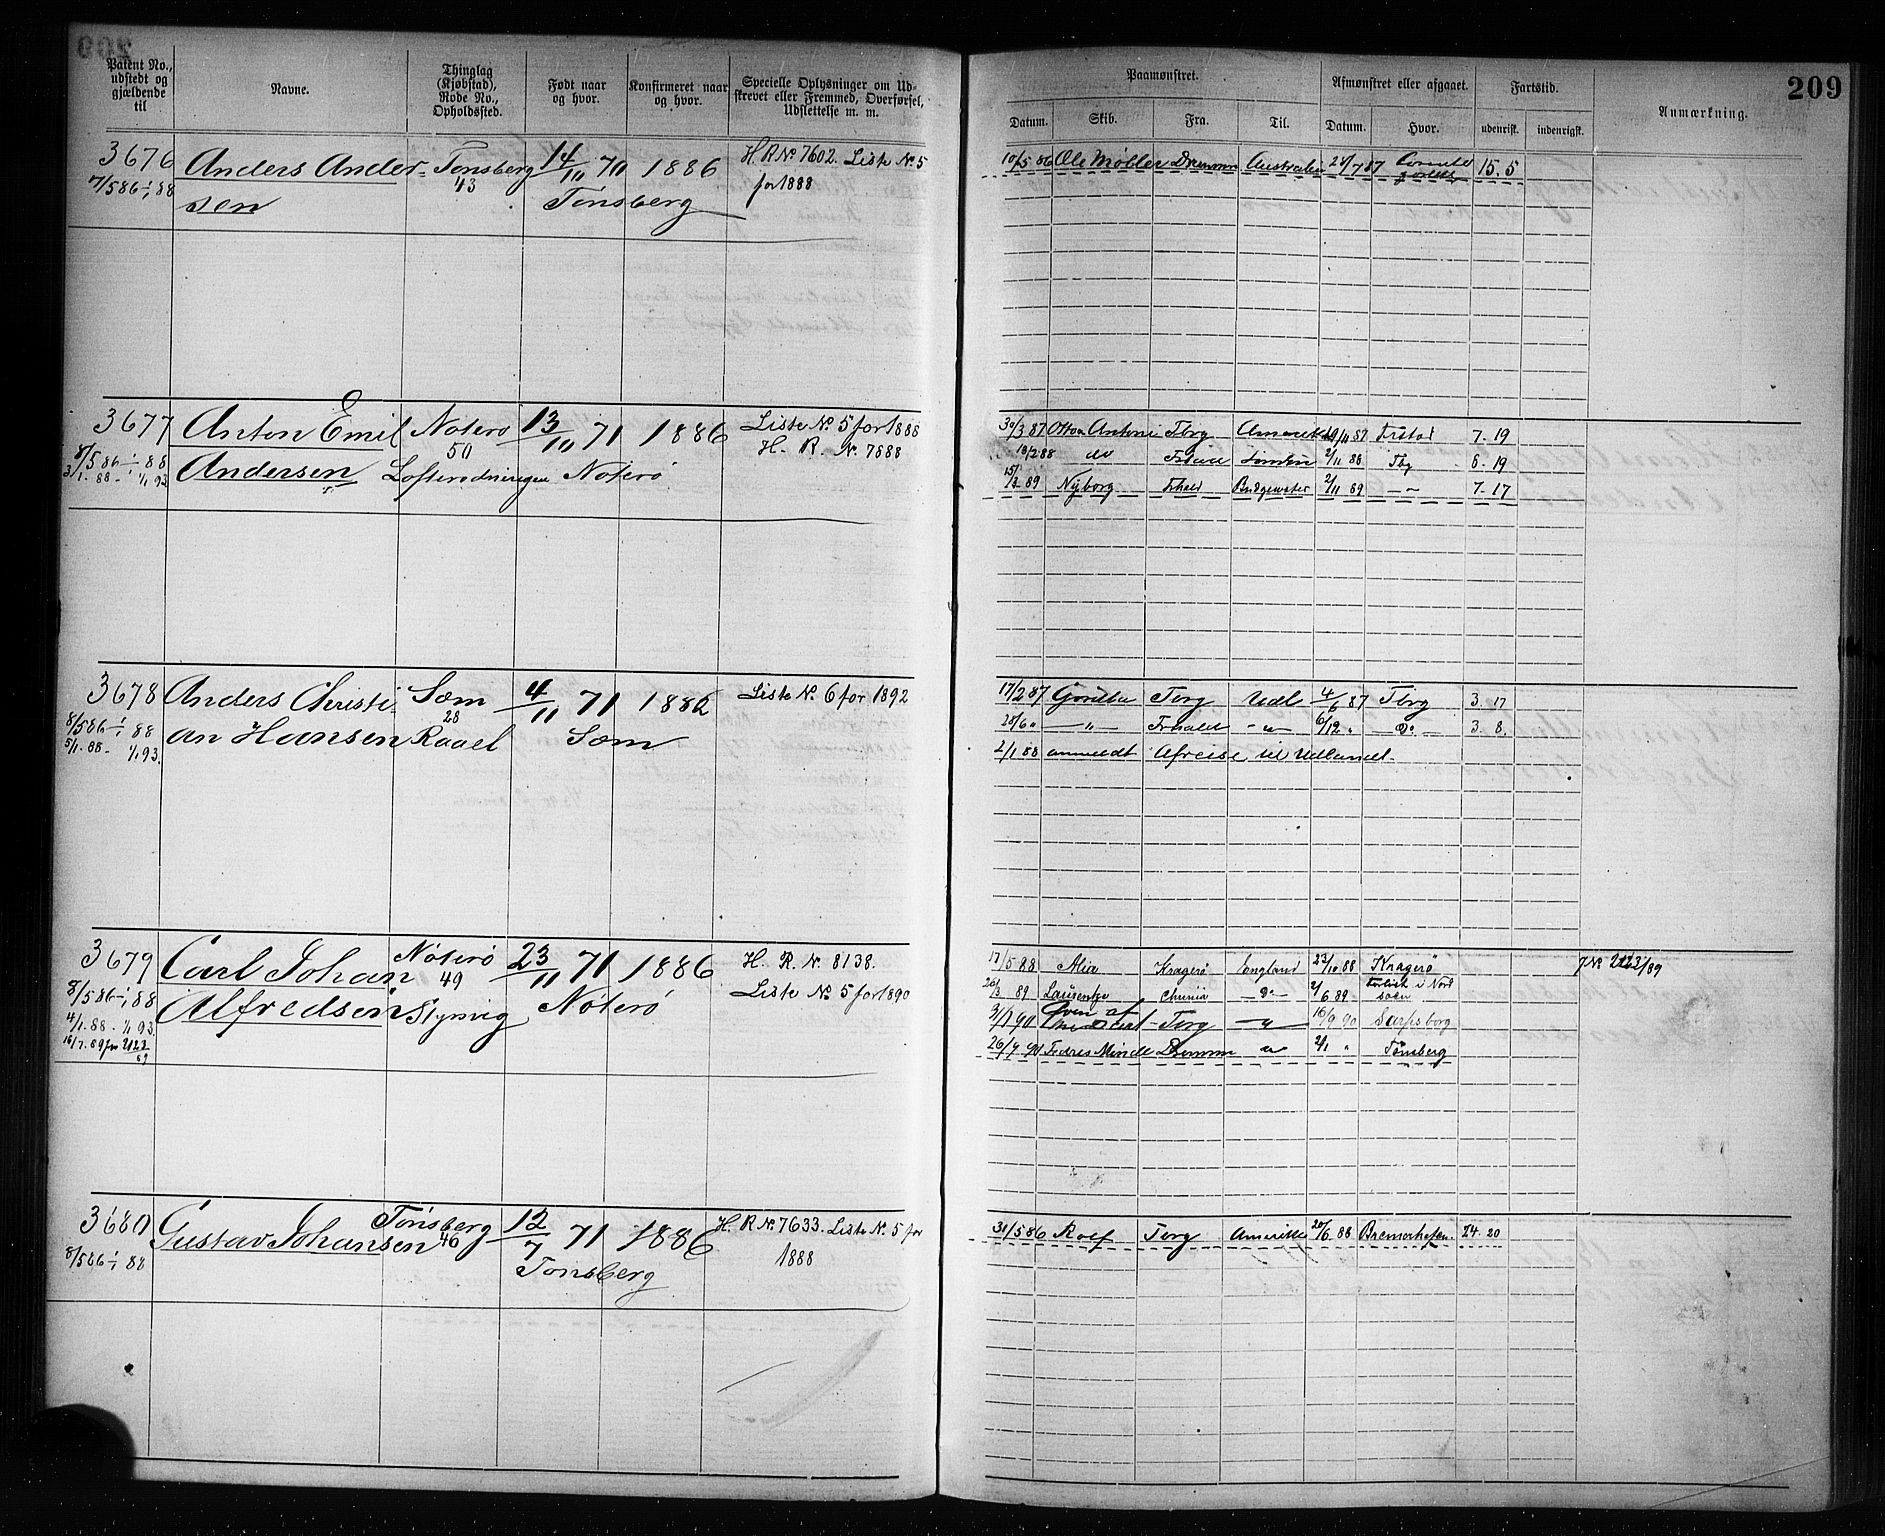 209
Patent No., udstedt og gjældende til
Navne.
Thinglag (Kjøbstad), Rode No., Opholdssted.
Født naar og hvor.
Konfirmeret naar og hvor.
Specielle Oplysninger om Udskrevet eller Fremmed, Overførsel, Udslettelse m. m.
Paamønstret.
Afmønstret eller afgaaet.
Fartstid.
Anmærkning.
Datum. Skib. Fra. Til. Datum. Hvor. udenrisk. indenrigsk.
3676 Anders Ander- Tønsberg 14/11 70 1886 H. R No 7602. Liste No 5
7/5 86 - 1/1 88 sen 43 Tønsberg for 1888
10/5 86 Ole Møller Drammn Australien 28/7 87 15. 5
3677 Anton Emil Nøterø 13/11 71 1886 Liste No 5 for 1888
8/5 86 - 1/1 88 Andersen 50 Nøterø H. R. No. 7888
3/1 88 - 1/1 93
30/3 87 Otto Antonie Tbrg Amerika 19/11 87 Frstad 7. 19
10/2 88 do London 2/11 88 Tbg 8. 19
15/3 89 Nyborg Frhald Bridgewater 2/11 89 -"- 7. 17
3678 Anders Christi- Sæm 4/11 71 1886 Liste No. 6 for 1892
8/5 86 - 1/1 88 an Hansen 28 Raael Sæm
5/1 88 - 1/1 93.
17/2 87 Tbrg Udl 4/6 87 Tbrg 3. 17
28/6 " -"- Frhald -"- 6/12 " - Do - 3. 8.
2/1 88 anmeldt Afreise til Udlandet.
3679 Carl Johan Nøterø 23/11 71 1886 H. R. No. 8138.
8/5 86 - 1/1 88 Alfredsen 49 Nøterø Liste No 5 for 1890
4/1 88 - 1/1 93.
16/7. 89 2123/89
17/5 88 Alia Kragerø England 23/10 88 Kragerø J No 2123/89
26/3 89 Laurentze Chrnia - Do - 2/6 89 forlist i Nordsøen
3/1 90 Tbrg -"- 16/9 90 Sarpsborg
26/9 90 Fedres Minde Drammn " 2/1 " Tønsberg
3680 Gustav Johansen Tønsberg 46 12/7 71 1886 H. R No. 7633. Liste No. 5 for
8/5 86 - 1/1 88 Tønsberg 1888
31/5 86 Rolf Tbrg Amerika 20/6 88 Bremerhafen. 24 20